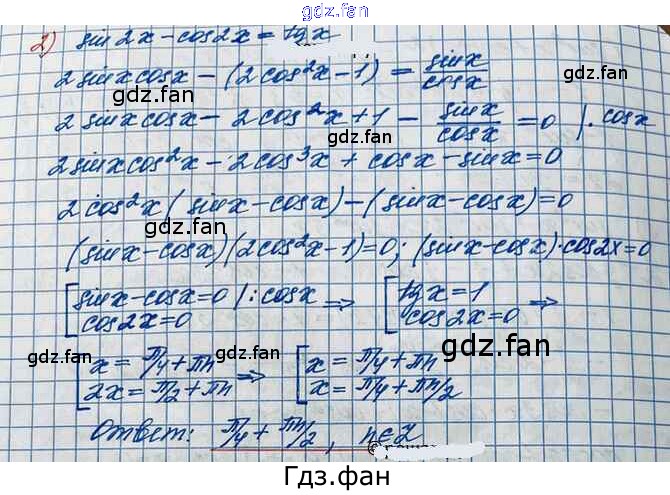 gdz.fan
2) sin 2x - cos 2x = tg x
2 sin x cos x - (2 cos²x - 1) = sin x / cos x
gdz.fan gdz.fan
2 sin x cos x - 2 cos²x + 1 - sin x / cos x = 0 | · cos x
2 sin x cos²x - 2 cos³x + cos x - sin x = 0
2 cos²x (sin x - cos x) - (sin x - cos x) = 0
gdz.fan gdz.fan
(sin x - cos x)(2 cos²x - 1) = 0; (sin x - cos x) · cos 2x = 0
[ sin x - cos x = 0 | : cos x ⇒ [ tg x = 1 ⇒
cos 2x = 0 cos 2x = 0
gdz.fan gdz.fan gdz.fan
[ x = π/4 + πn ⇒ [ x = π/4 + πn
2x = π/2 + πn x = π/4 + πn/2
Ответ: π/4 + πn/2, n ∈ Z
gdz.fan
Гдз.фан